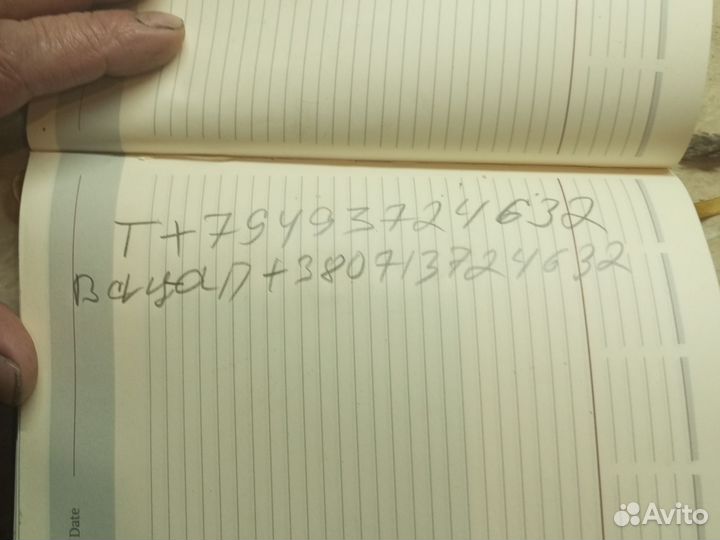 Т+79493724632
Вацап +380713724632
Date
Avito